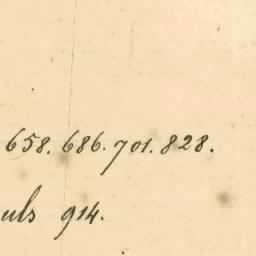 658. 686. 701. 828.
uls 914.